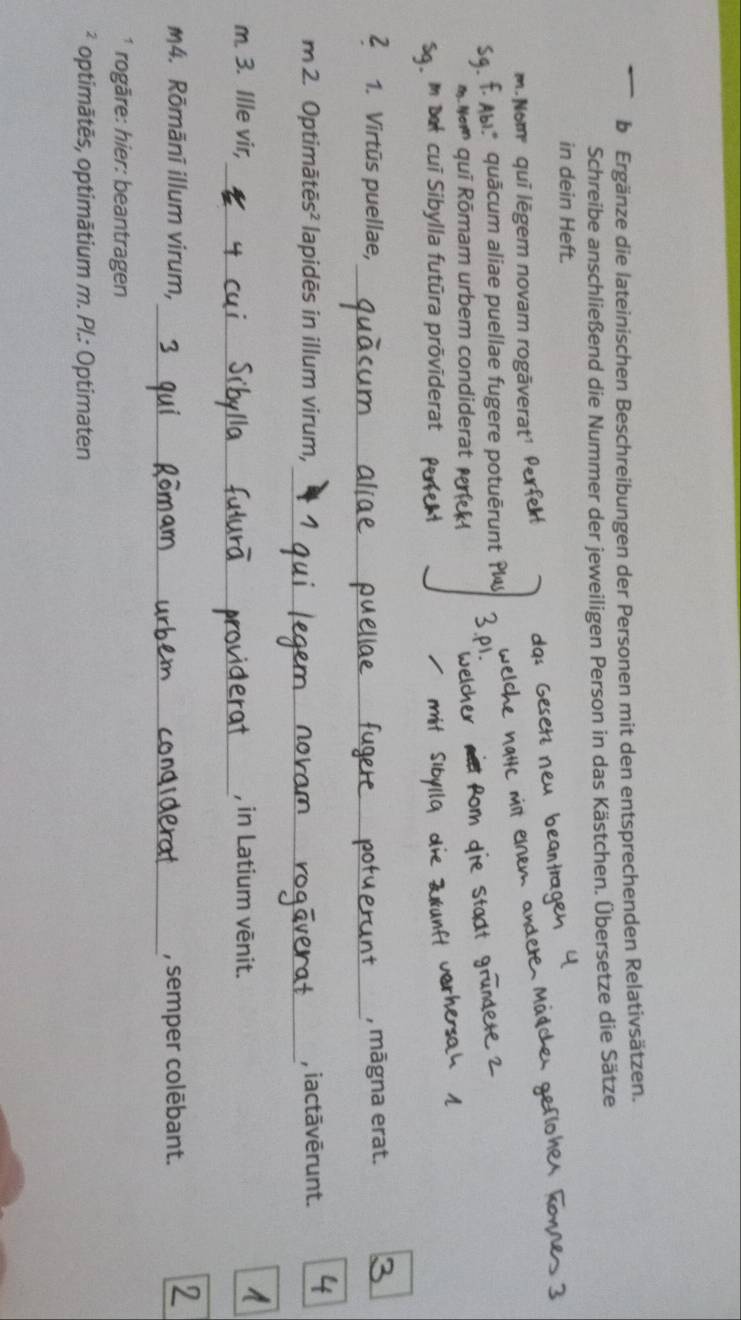 b Ergänze die lateinischen Beschreibungen der Personen mit den entsprechenden Relativsätzen.
Schreibe anschließend die Nummer der jeweiligen Person in das Kästchen. Übersetze die Sätze
in dein Heft.
m. Nom quī lēgem novam rogāverat¹ Perfekt das Gesetz neu beantragen 4
Sg. f. Abl. quācum aliae puellae fugere potuērunt Plus 3. Pl. welche hatte mit einem anderen Mädchen geflohen können 3
m. Nom quī Rōmam urbem condiderat Perfekt welcher Rom die Stadt gründete 2
Sg. m Dat cuī Sibylla futūra prōvīderat perfekt mit Sibylla die Zukunft vorhersah 1
? 1. Virtūs puellae, quācum aliae puellae fugere potuerunt, māgna erat. 3
m 2 Optimātēs² lapidēs in illum virum, 1 qui legem novam rogāverat, iactāvērunt. 4
m. 3. Ille vir, 4 cui Sibylla futurā providerat, in Latium vēnit. 1
m 4. Rōmānī illum virum, 3 qui Rōmam urbem condiderat, semper colēbant. 2
¹ rogāre: hier: beantragen
² optimātēs, optimātium m. Pl.: Optimaten